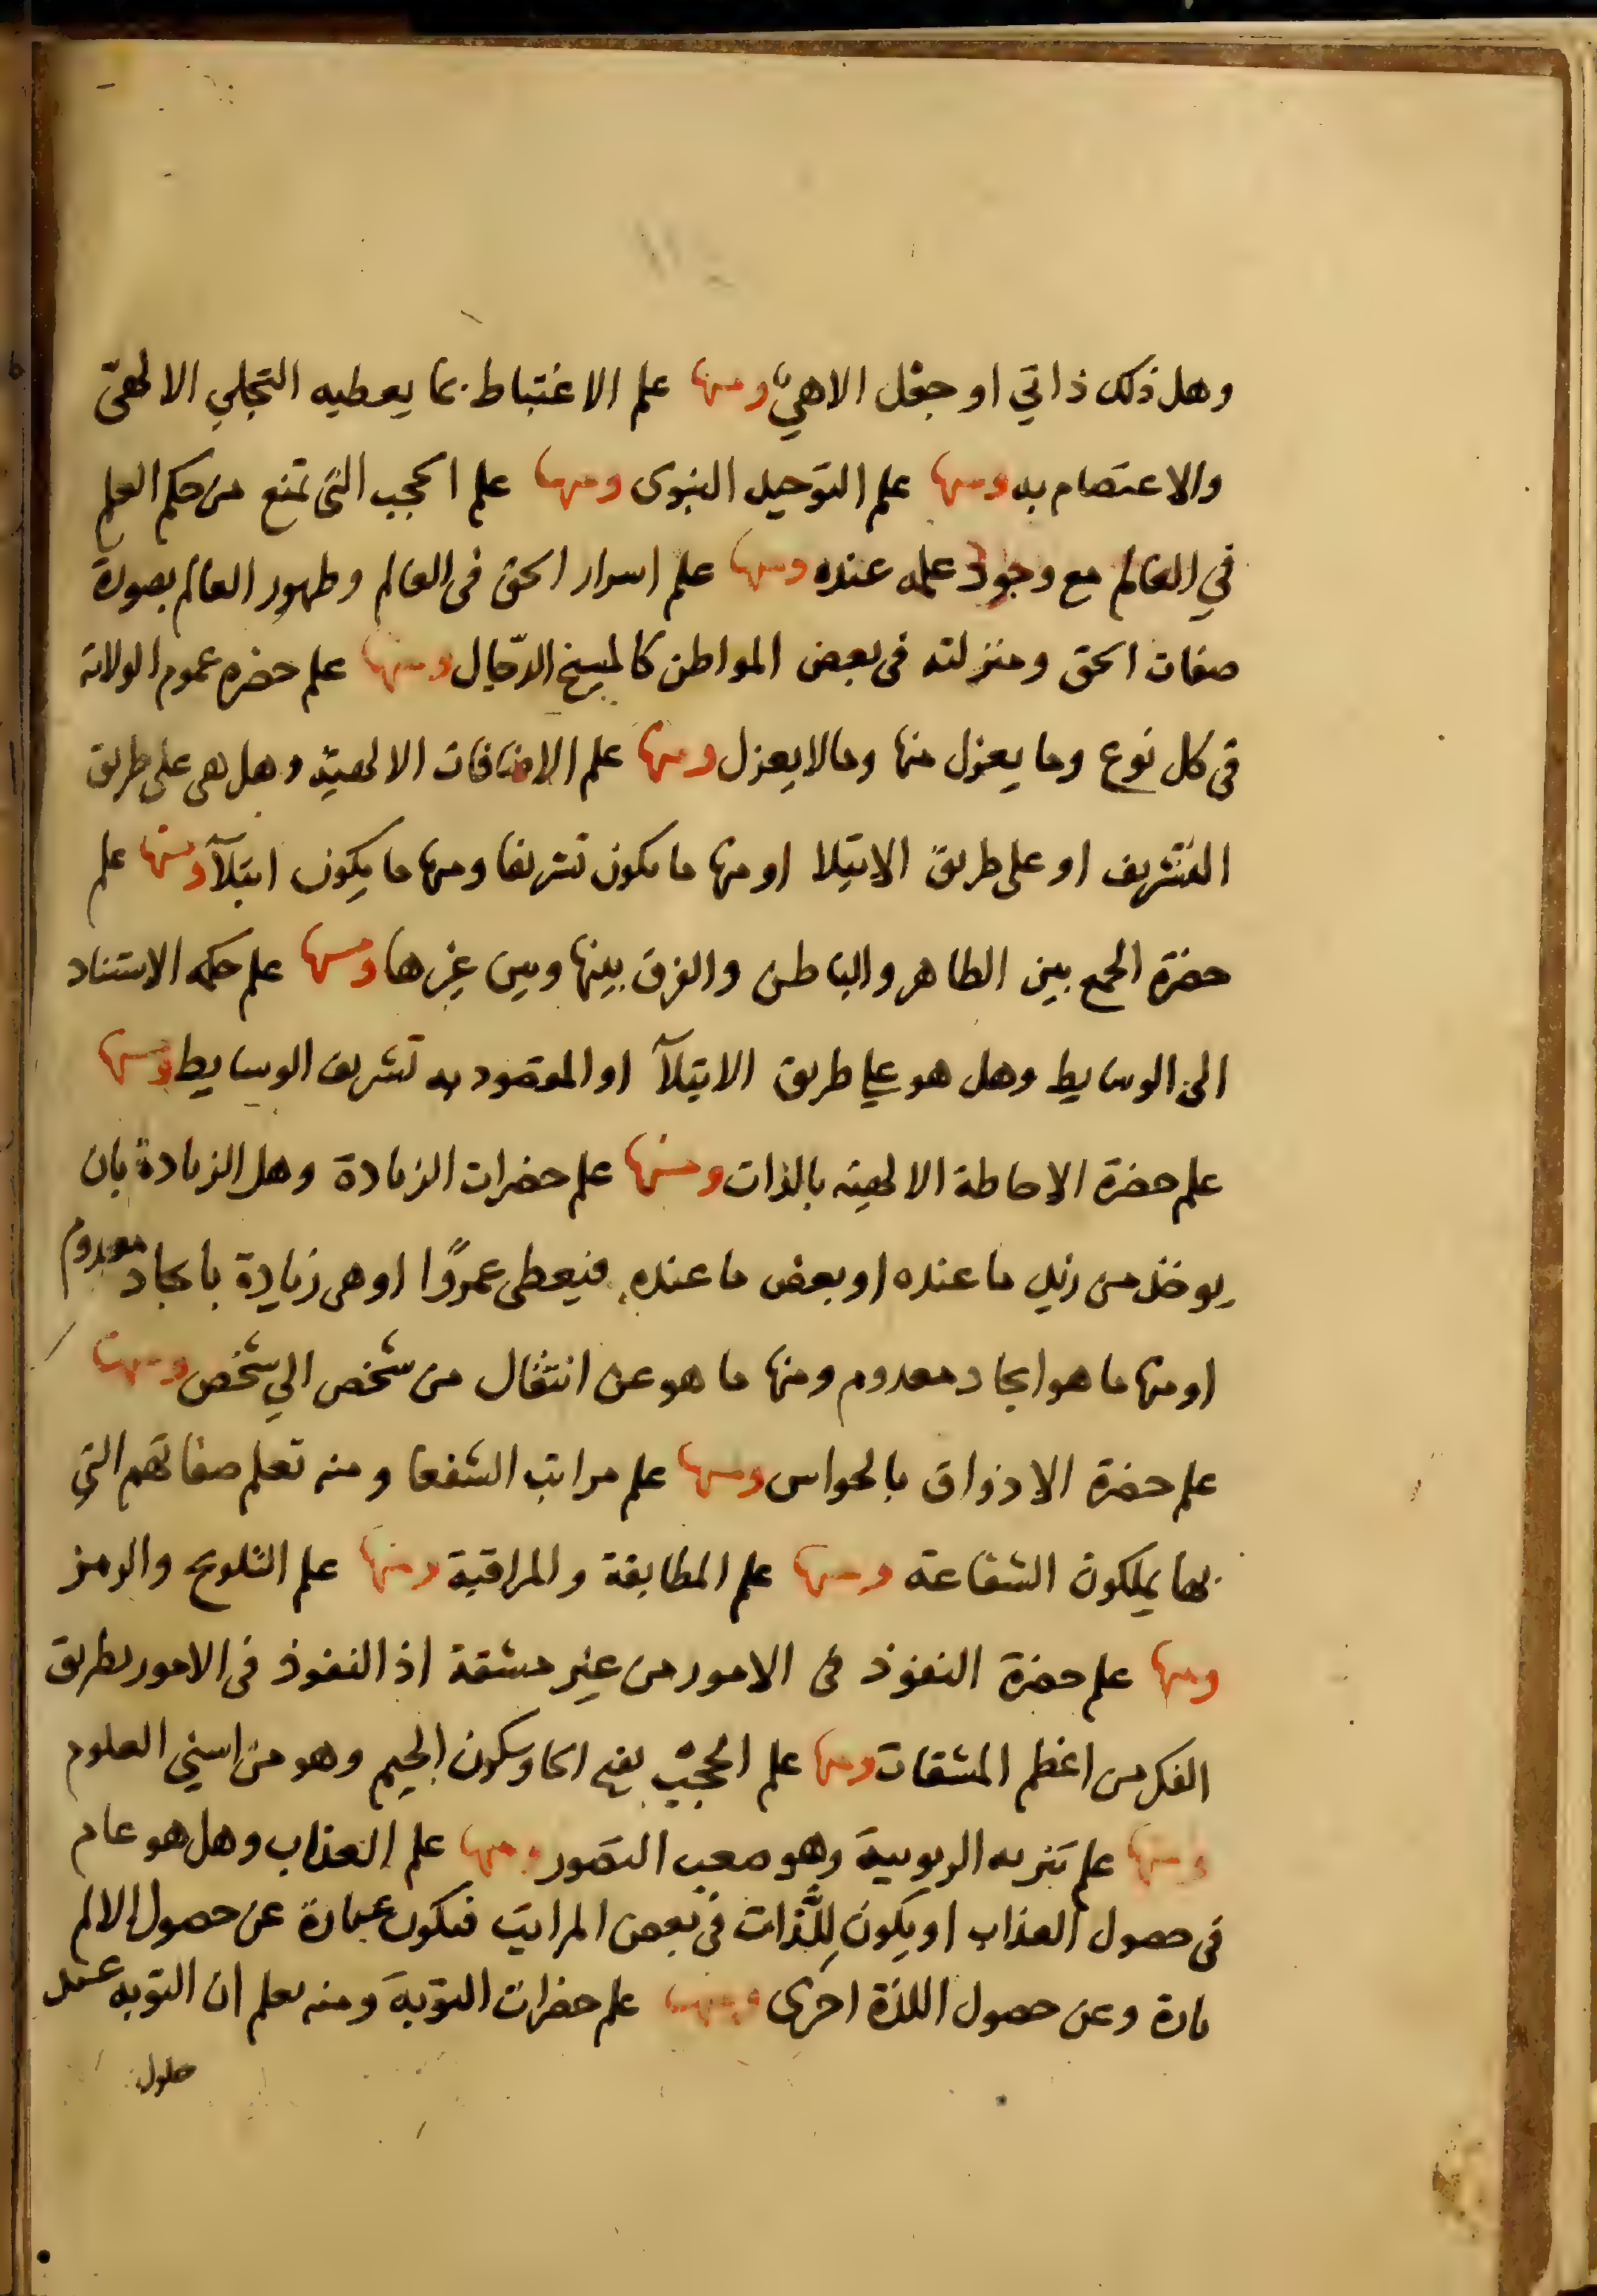 وهل ذلك ذاتي او جعل الاهي ومنها علم الاغتباط بما يعطيه التجلي الالهيّ
والاعتصام به ومنها علم التوحيد النبوى ومنها علم الحجب التى تمنع من حكم العلم
في العالم مع وجود علمه عنده ومنها علم اسرار الحق فى العالم وظهور العالم بصورة
صفات الحق ومنزلته فى بعض المواطن كالمسيخ الدّجال ومنها علم حضره عموم الولاية
فى كل نوع وما يعزل منها وما لا يعزل ومنها علم الاضافات الالهيّة وهل هى على طريق
التشريف او على طريق الابتلا او منها ما يكون تشريفا ومنها ما يكون ابتلآ ومنها علم
حضرة الجمع بين الظاهر والباطن والفرق بينها وبين غيرها ومنها علم حكمه الاستناد
الى الوسايط وهل هو على طريق الابتلآ او المقصود به تشريف الوسايط ومنها
علم حضرة الاحاطة الالهيه بالذات ومنها علم حضرات الزيادة وهل الزيادة بان
يوخذ من زيد ما عنده او بعض ما عنده فيعطى عمروًا او هى زيادة بايجاد معدوم
او منها ما هو ايجاد معدوم ومنها ما هو عن انتقال من شخص الي شخص ومنها
علم حضرة الاذواق بالحواس ومنها علم مراتب الشفعا ومنه تعلم صفاتهم التي
بها يملكون الشفاعة ومنها علم المطابقة والمراقبة ومنها علم التلويح والرمز
ومنها علم حضرة النفوذ فى الامور من غير مشقة اذ النفوذ فى الامور بطريق
الفكر من اعظم المشقات ومنها علم الحجب بفتح الحا وسكون الجيم وهو من اسني العلوم
ومنها علم تنزيه الربوبية وهو صعب التصور ومنها علم العذاب وهل هو عام
فى حصول العذاب او يكون للّذات فى بعض المراتب فتكون عبارة عن حصول الالم
تارة وعن حصول اللذة اخرى ومنها علم حضرات التوبة ومنه يعلم ان التوبه عند
حلول